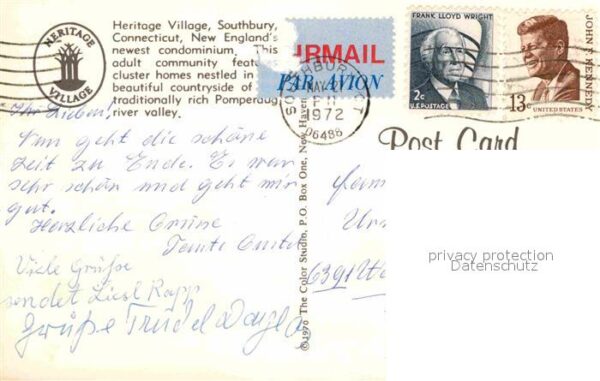 HERITAGE
VILLAGE
Heritage Village, Southbury,
Connecticut, New England's
newest condominium. This
adult community features
cluster homes nestled in
beautiful countryside of
traditionally rich Pomperaug
river valley.
AIRMAIL
PAR AVION
SOUTHBURY
MAY
PM
1972
06488
FRANK LLOYD WRIGHT
2c
U.S. POSTAGE
JOHN F. KENNEDY
13c
UNITED STATES
Post Card
Ihr Lieben!
Nun geht die schöne
Zeit zu Ende. Es war
sehr schön und geht mir
gut.
Herzliche Grüsse
Tante
Viele Grüße
sendet Liesl Rapp
Grüße Trudel
©1970 The Color Studio, P.O. Box One, New Haven
Fam
6391
privacy protection
Datenschutz